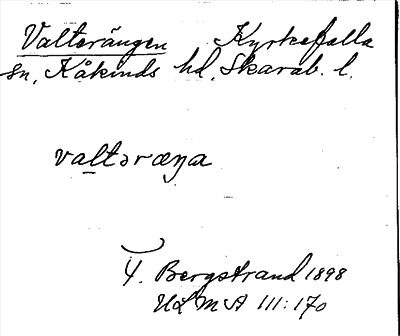 Valterängen Kyrkefalla
sn, Kåkinds hd, Skarab. l.
valtəræŋa
Bergstrand 1898
III:170